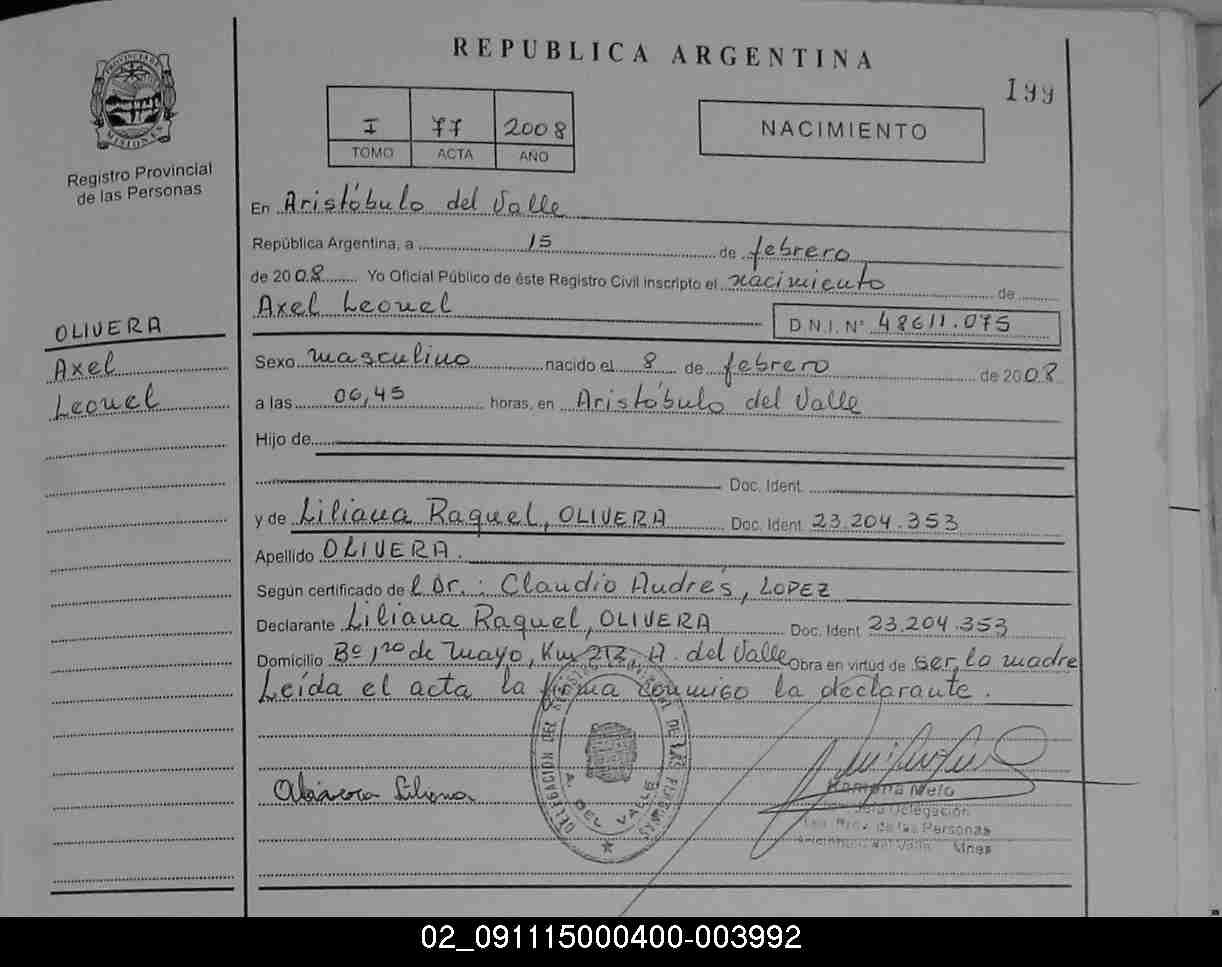 REPUBLICA ARGENTINA
199
PROVINCIA DE MISIONES
Registro Provincial
de las Personas
I 77 2008
TOMO ACTA AÑO
NACIMIENTO
En Aristóbulo del Valle
República Argentina, a 15 de febrero
de 2008 Yo Oficial Público de éste Registro Civil inscripto el nacimiento de
Axel Leonel
D.N.I. N° 48611.075
OLIVERA
Axel
Leonel
Sexo masculino nacido el 8 de febrero de 2008
a las 06,45 horas, en Aristóbulo del Valle
Hijo de
Doc. Ident.
y de Liliana Raquel, OLIVERA Doc. Ident 23.204.353
Apellido OLIVERA.
Según certificado del Dr.: Claudio Andrés, LOPEZ
Declarante Liliana Raquel, OLIVERA Doc. Ident 23.204.353
Domicilio Bº 1ro de mayo, Km 212, A. del Valle Obra en virtud de ser la madre
Leída el acta la firma conmigo la declarante.
DELEGACION DEL REGISTRO PROVINCIAL DE LAS PERSONAS
A. DEL VALLE
Ramona Melo
Delegación
Reg. Prov. de las Personas
Aristóbulo del Valle Mnes
02_091115000400-003992